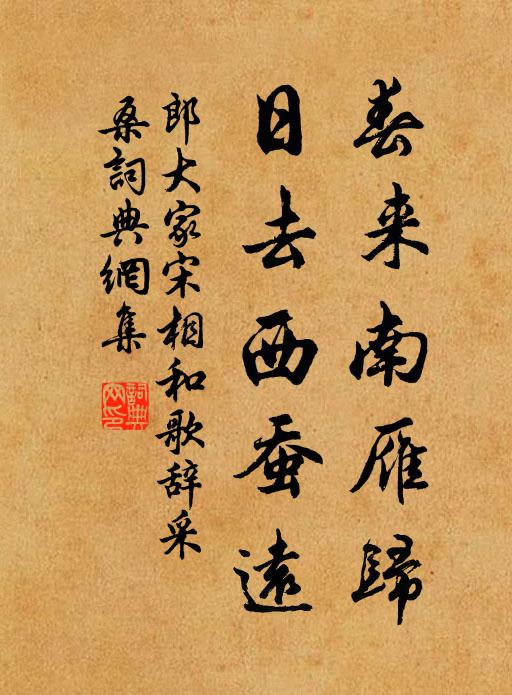 春来南雁歸
日去西蚕遠
郎大家宋相和歌辞采
桑詞典網集
詞典网印